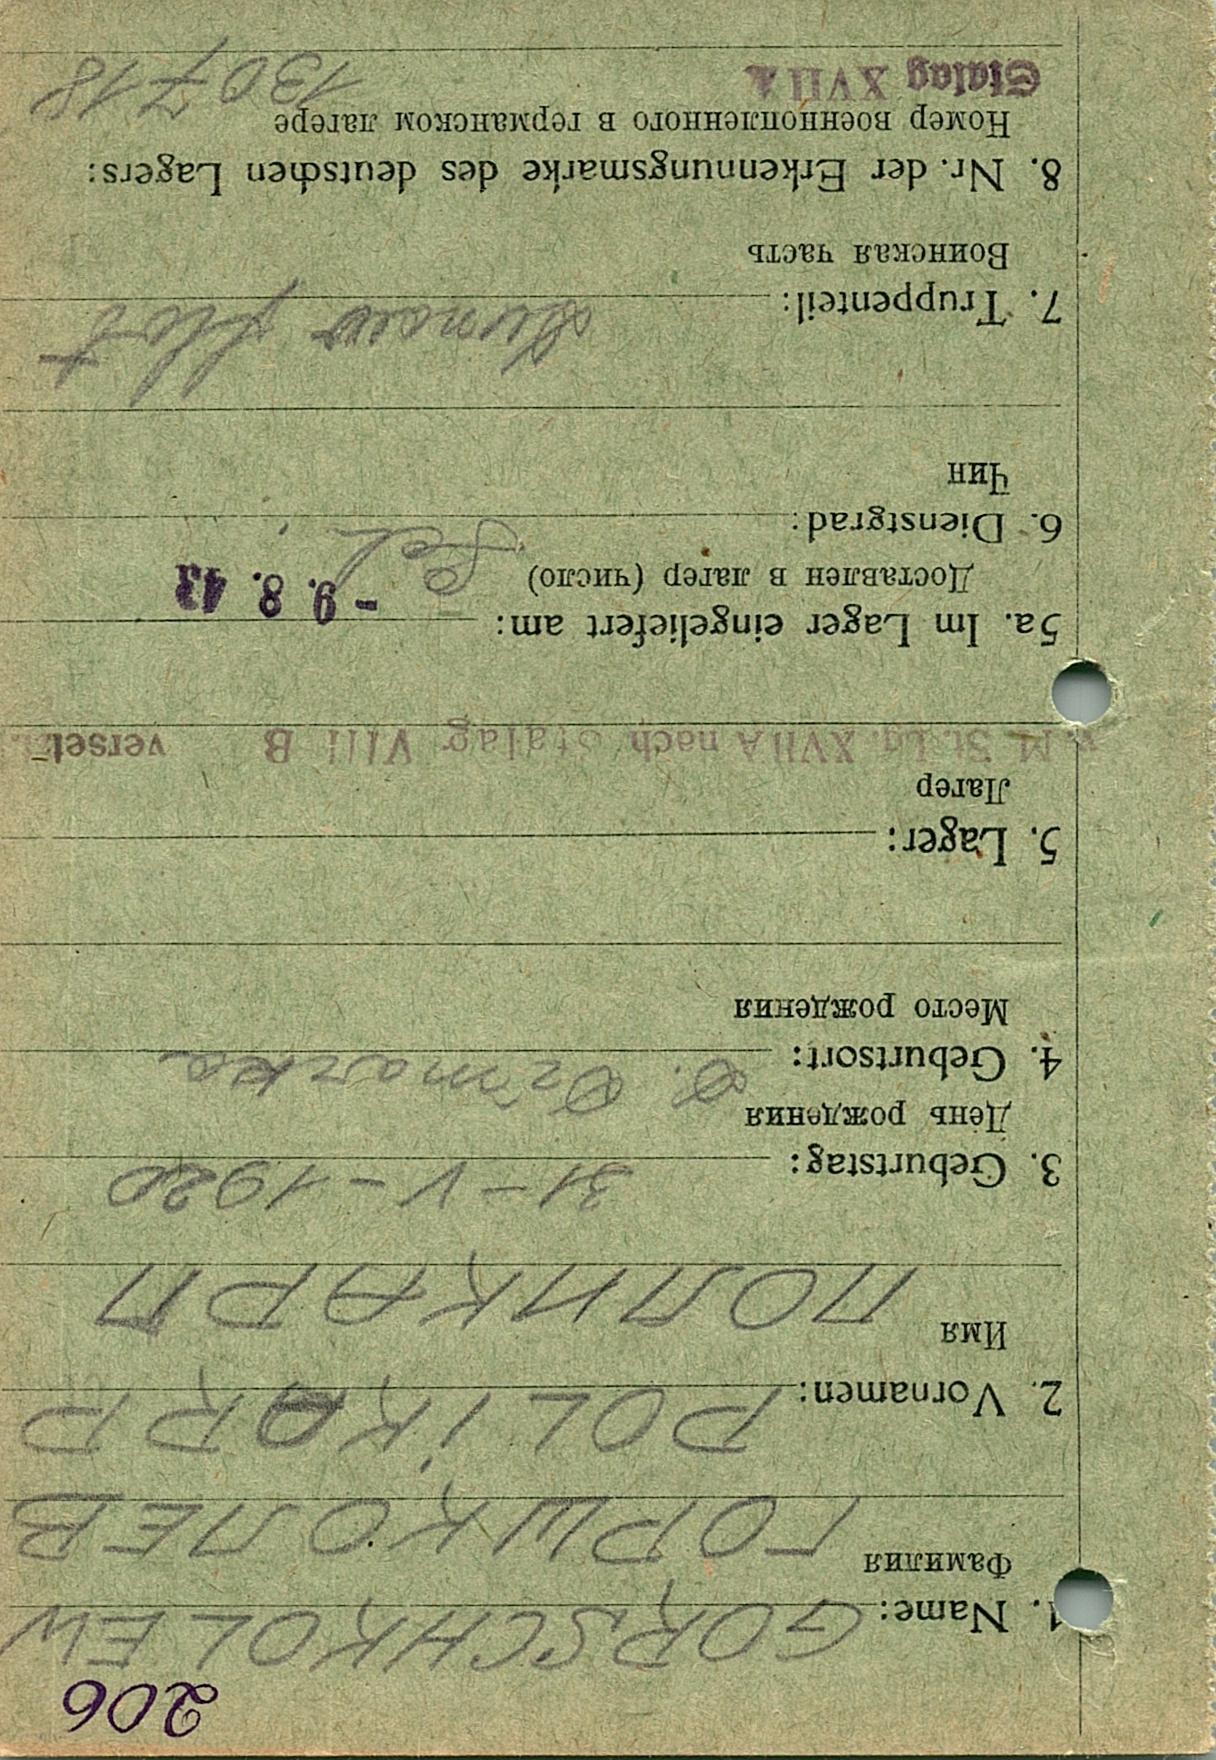 206
1. Name: GORSCHKOLEW
Фамилия
ГОРШКОЛЕВ
2. Vornamen: POLIKARP
Имя
ПОЛИКАРП
3. Geburtstag: 31-V-1920
День рождения
4. Geburtsort:
Место рождения
5. Lager:
Лагер
v. M. St. Lg. XVII A nach Stalag VIII B versetzt.
5a. Im Lager eingeliefert am: - 9. 8. 43
Доставлен в лагер (число)
6. Dienstgrad:
Чин
7. Truppenteil: flot
Воинская часть
8. Nr. der Erkennungsmarke des deutschen Lagers:
Номер военнопленного в германском лагере
Stalag XVII A 130718